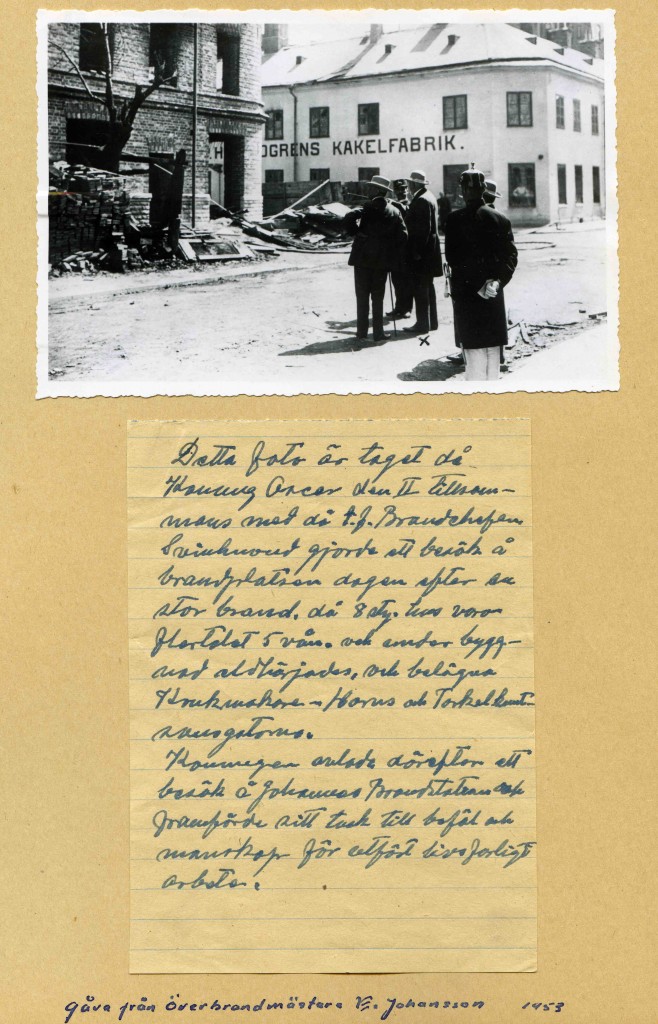 H
OGRENS KAKELFABRIK.
x
Detta foto är taget då
Konung Oscar den II tillsam-
mans med då t.f. Brandchefen
Svinhuvud gjorde ett besök å
brandplatsen dagen efter en
stor brand, då 8 st. hus voro
flertalet 5 vån. och under bygg-
nad eldhärjades, och belägna
Krukmakare- Horns och Torkel Knut-
sonsgatorna.
Konungen avlade därefter ett
besök å Johannes Brandstation och
framförde sitt tack till befäl och
manskap för utfört livsfarligt
arbete.
Gåva från Överbrandmästare Johansson 1953